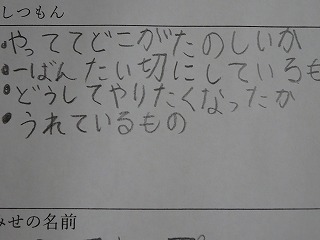 しつもん
・やっててどこがたのしいか
・一ばんたい切にしているも
・どうしてやりたくなったか
・うれているもの
みせの名前